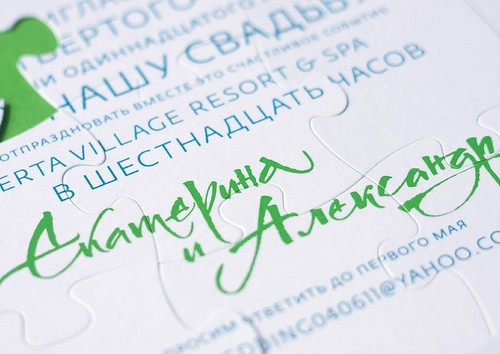 ВЕРТОГО
И ОДИННАДЦАТОГО
НАШУ СВАДЬБУ
ОТПРАЗДНОВАТЬ ВМЕСТЕ ЭТО СЧАСТЛИВОЕ СОБЫТИЕ
ERTA VILLAGE RESORT & SPA
В ШЕСТНАДЦАТЬ ЧАСОВ
Екатерина
и Александр
ПРОСИМ ОТВЕТИТЬ ДО ПЕРВОГО МАЯ
EDDING040611@YAHOO.CO